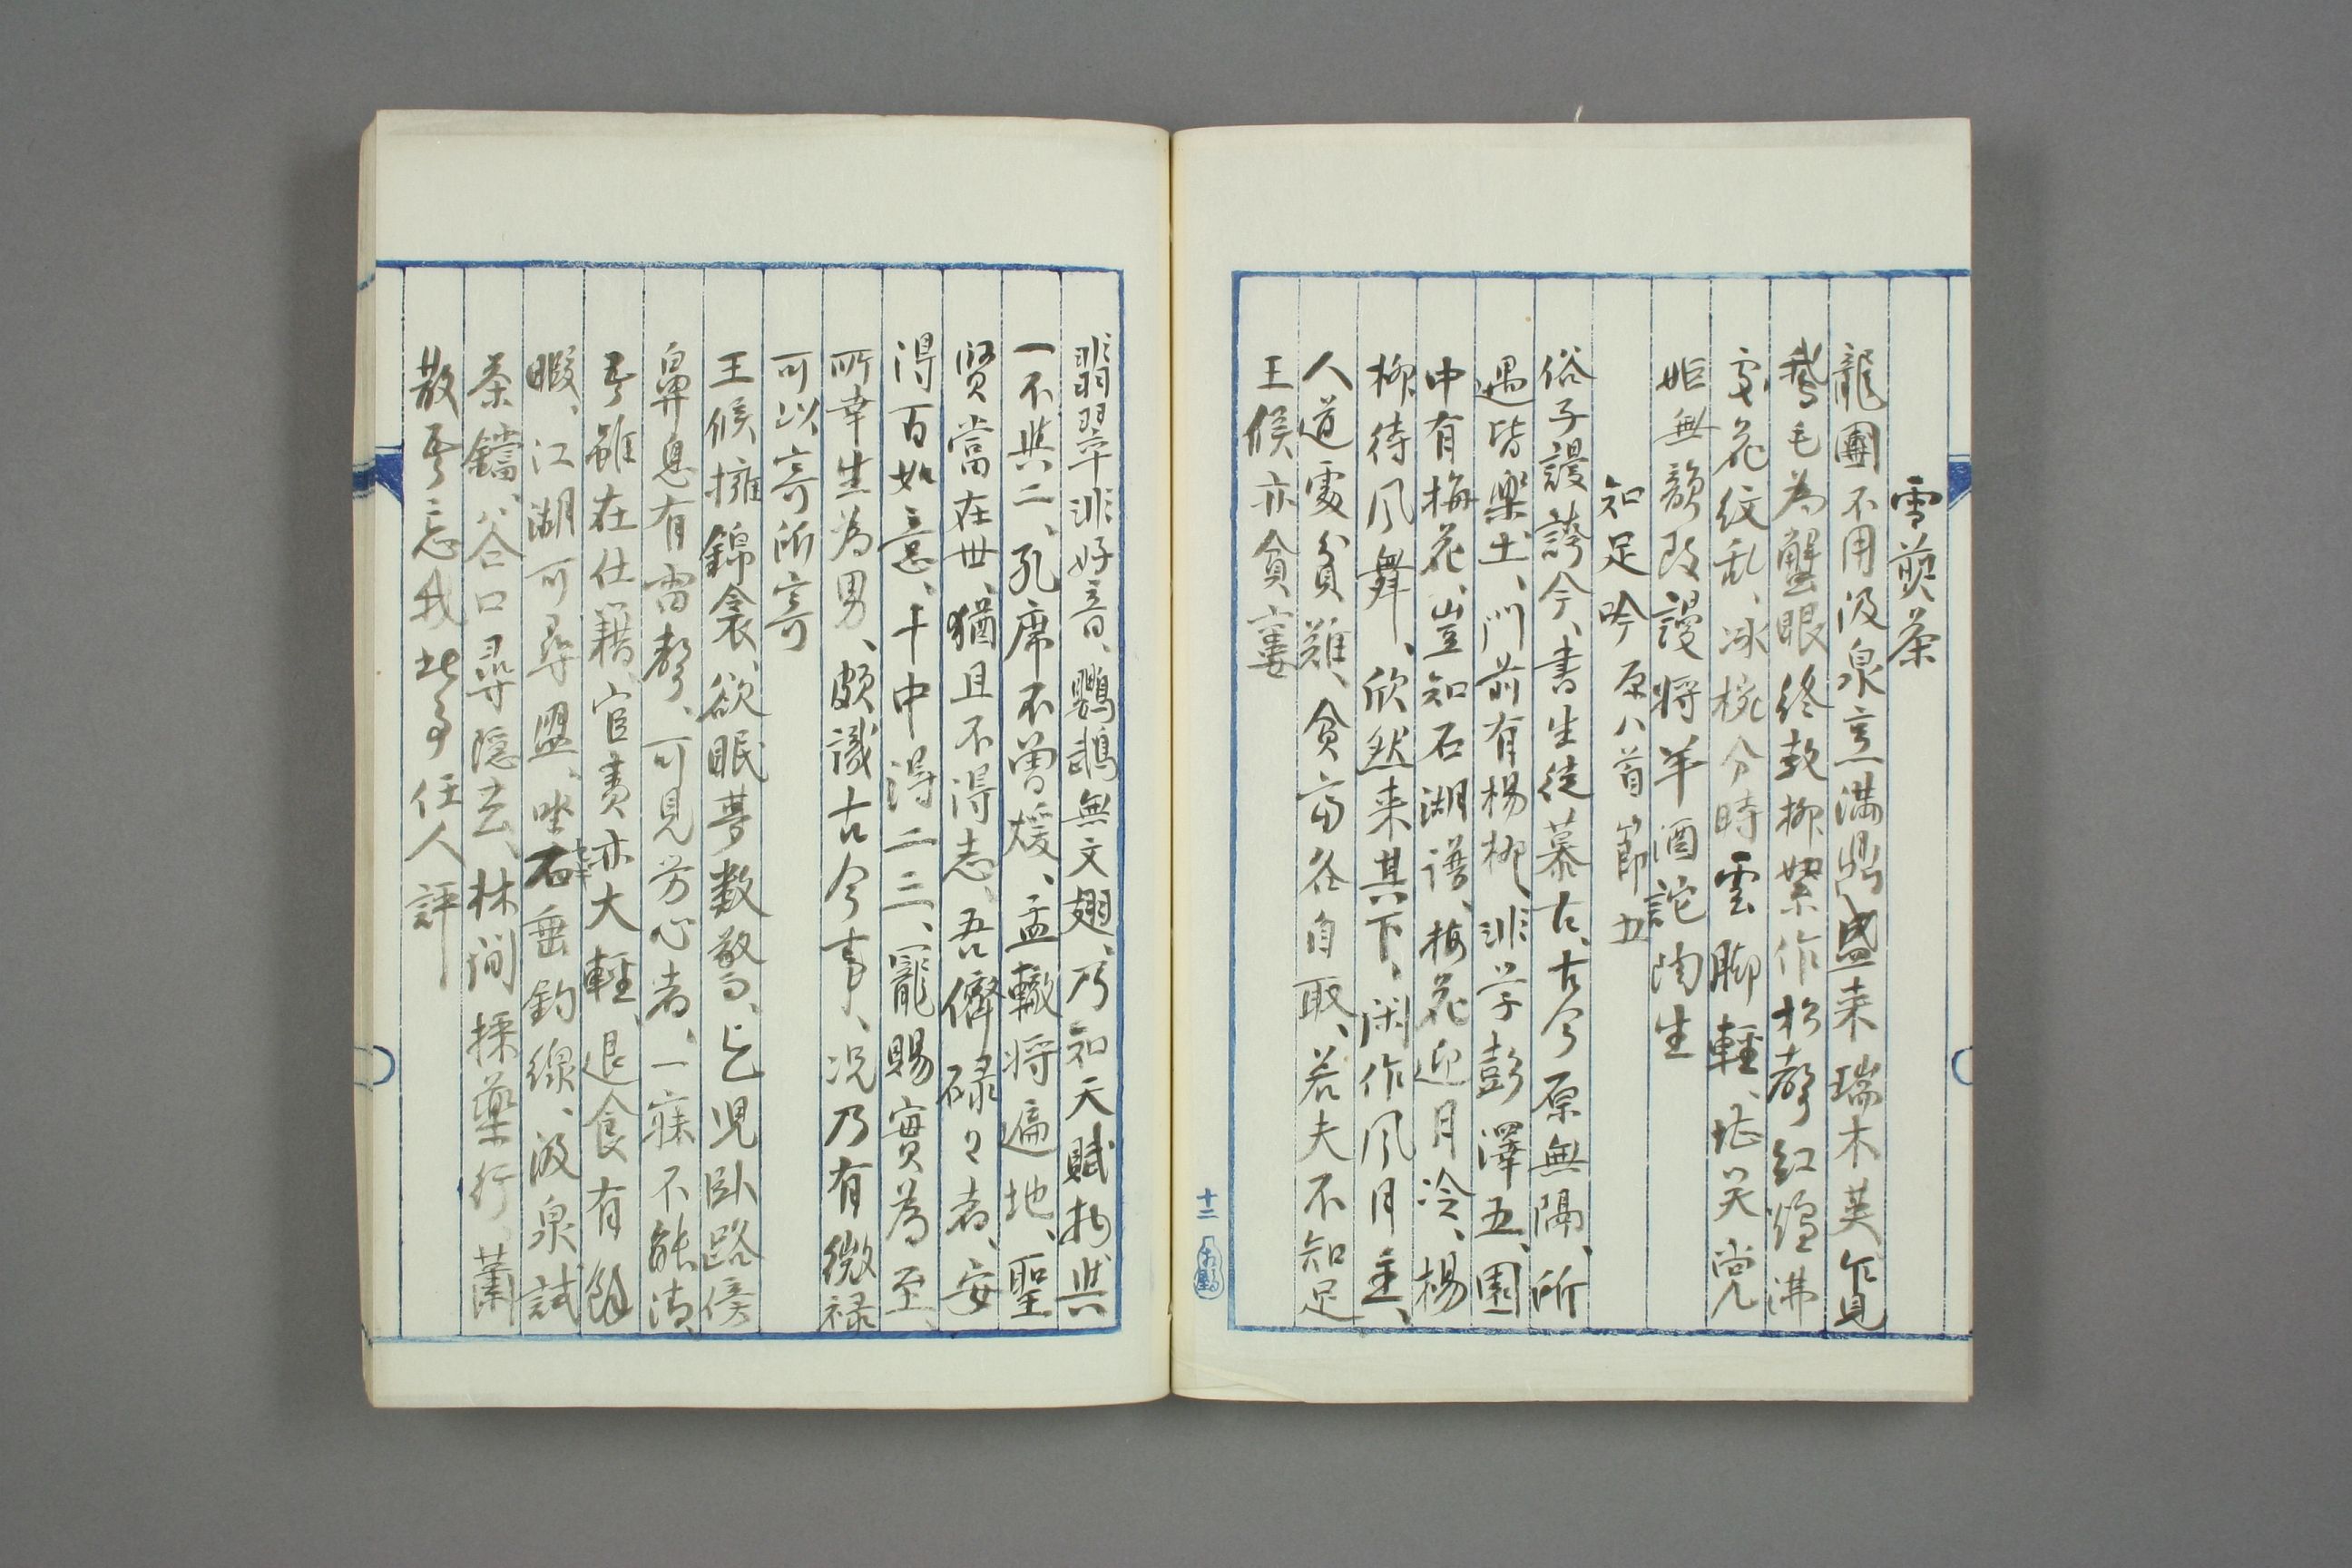 雪煎茶
龍團不用汲泉烹満鼎盛来瑞木英乍見
鵞毛為蟹眼終教柳絮作松聲紅爐沸
處花紋乱、冰椀分時雲脚軽、堪笑党
姫無韻致謾将羊酒詫陶生
知足吟 原八首節五
俗子謾誇今、書生徒慕古、古今原無隔、所
遇皆楽土、門前有楊柳、非学彭澤五、園
中有梅花、豈知石湖譜、梅花迎月冷、楊
柳待风舞、欣然来其下、閑作风月主、
人道處貧難、貧富在自取、若夫不知足
王侯亦貧窶
翡翠非好音、鸚鵡無文翅、乃知天賦物與
一不與二、孔席不曽煖、孟轍将遍地、聖
賢當在世、猶且不得志、吾儕碌々者、安
得百如意、十中得二三、寵賜實為至、
所幸生為男、頗識古今事、况乃有微禄
可以寄所寄
王侯擁錦衾、欲眠夢数驚、乞児臥路傍
鼻息有雷聲、可見労心者、一寐不能清、
吾雖在仕籍、官責亦大軽、退食有餘
暇、江湖可尋盟、坐石垂釣線、汲泉試
茶鐺、谷口尋隠去、林间採薬行、蕭
散吾忘我此事任人評
十二